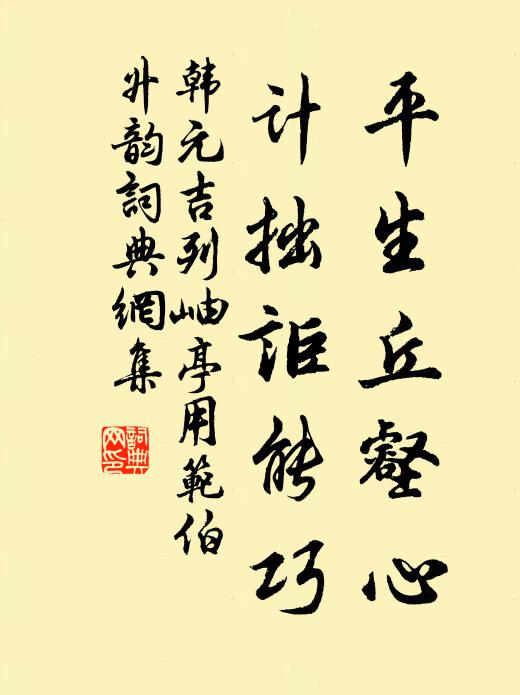 平生丘壑心
计拙詎能巧
韩元吉列岫亭用範伯
升韵詞典網集
詞典網印